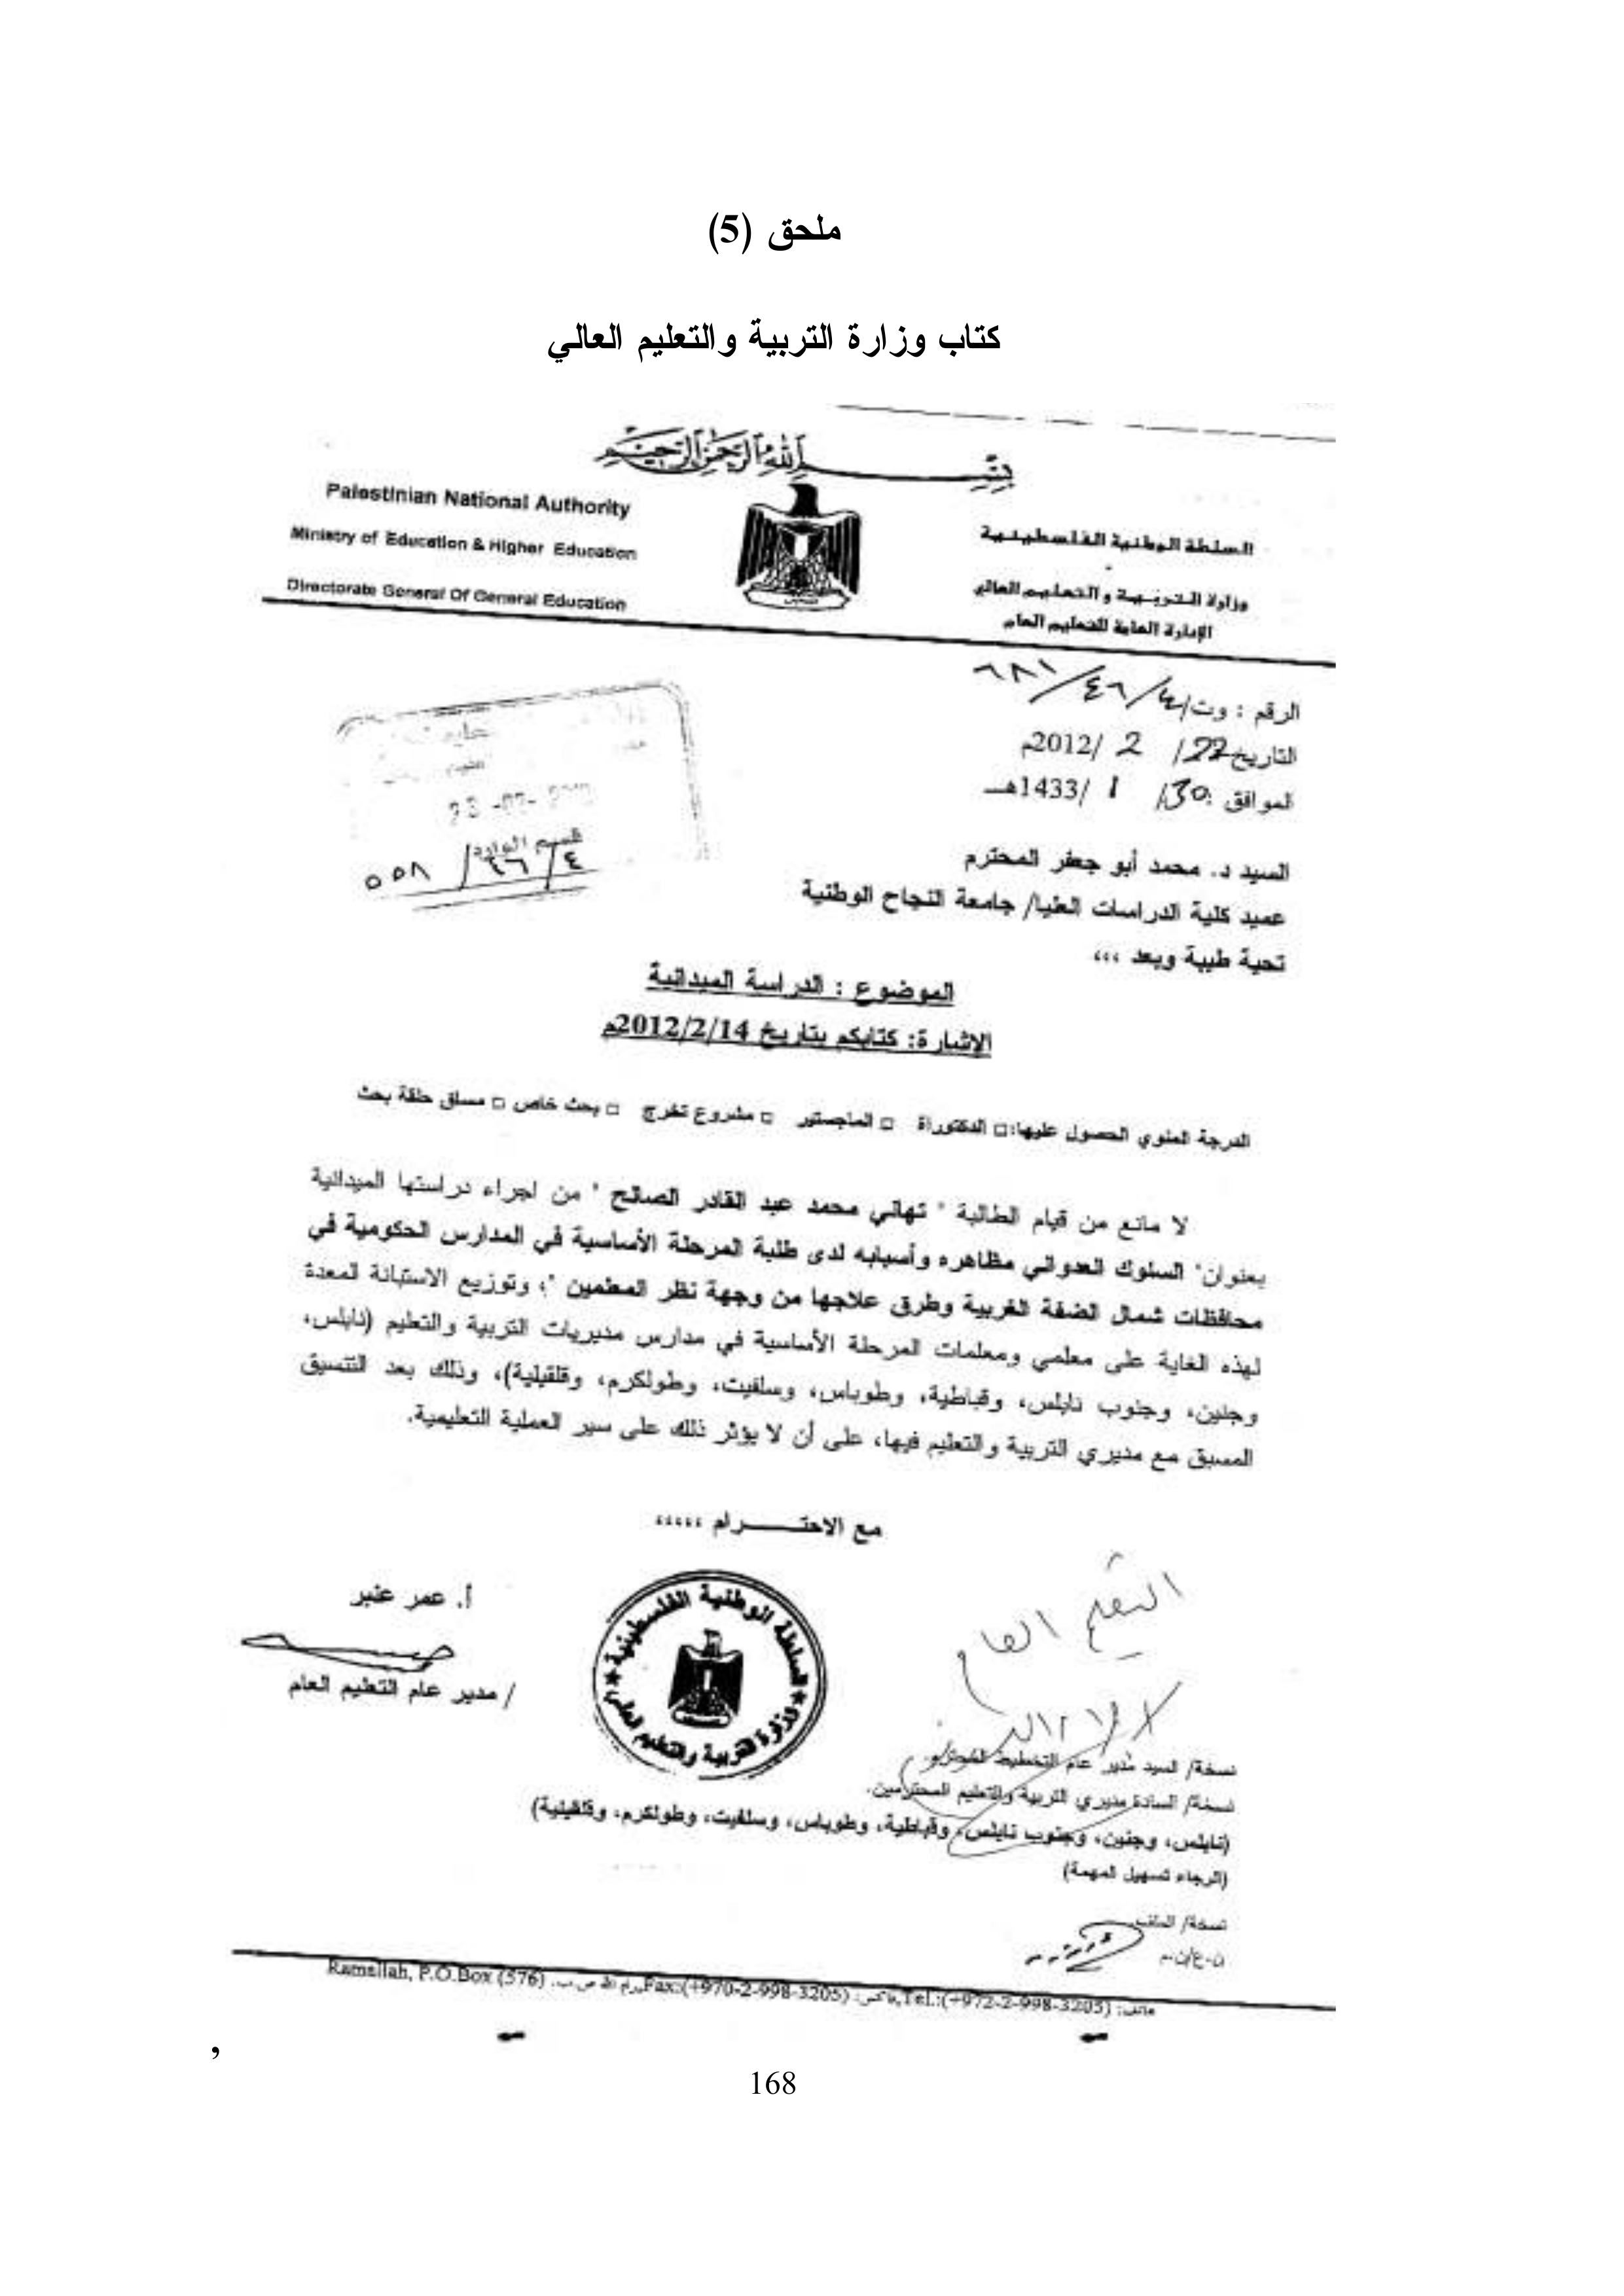 ملحق (5)
كتاب وزارة التربية والتعليم العالي
بسم الله الرحمن الرحيم
Palestinian National Authority
Ministry of Education & Higher Education
Directorate General Of General Education
السلطة الوطنية الفلسطينية
وزارة التربية والتعليم العالي
الإدارة العامة للتعليم العام
الرقم : وت/٤/٤٦/٦٨١
التاريخ 22/ 2 /2012م
الموافق :30/ 1 /1433هـ
قسم الوارد
٤/٢٦/٥٥٨
السيد د. محمد أبو جعفر المحترم
عميد كلية الدراسات العليا/ جامعة النجاح الوطنية
تحية طيبة وبعد ،،،
الموضوع : الدراسة الميدانية
الإشارة: كتابكم بتاريخ 2012/2/14م
الدرجة المنوي الحصول عليها:□ الدكتوراة □ الماجستير □ مشروع تخرج □ بحث خاص □ مساق حلقة بحث
لا مانع من قيام الطالبة " تهاني محمد عبد القادر الصالح " من اجراء دراستها الميدانية
بعنوان" السلوك العدواني مظاهره وأسبابه لدى طلبة المرحلة الأساسية في المدارس الحكومية في
محافظات شمال الضفة الغربية وطرق علاجها من وجهة نظر المعلمين "، وتوزيع الاستبانة المعدة
لهذه الغاية على معلمي ومعلمات المرحلة الأساسية في مدارس مديريات التربية والتعليم (نابلس،
وجنين، وجنوب نابلس، وقباطية، وطوباس، وسلفيت، وطولكرم، وقلقيلية)، وذلك بعد التنسيق
المسبق مع مديري التربية والتعليم فيها، على أن لا يؤثر ذلك على سير العملية التعليمية.
مع الاحتـــــرام ،،،،،
أ. عمر عنبر
/ مدير عام التعليم العام
السلطة الوطنية الفلسطينية
وزارة التربية والتعليم العالي
التعليم العام
نسخة/ السيد مدير عام التخطيط المحترم.
نسخة/ السادة مديري التربية والتعليم المحترمين.
(نابلس، وجنين، وجنوب نابلس، وقباطية، وطوباس، وسلفيت، وطولكرم، وقلقيلية)
(الرجاء تسهيل المهمة)
نسخة/ الملف
هاتف: Tel.:(+972-2-998-3205), فاكس: Fax:(+970-2-998-3205), رام الله ص.ب. Ramallah, P.O.Box (576)
168